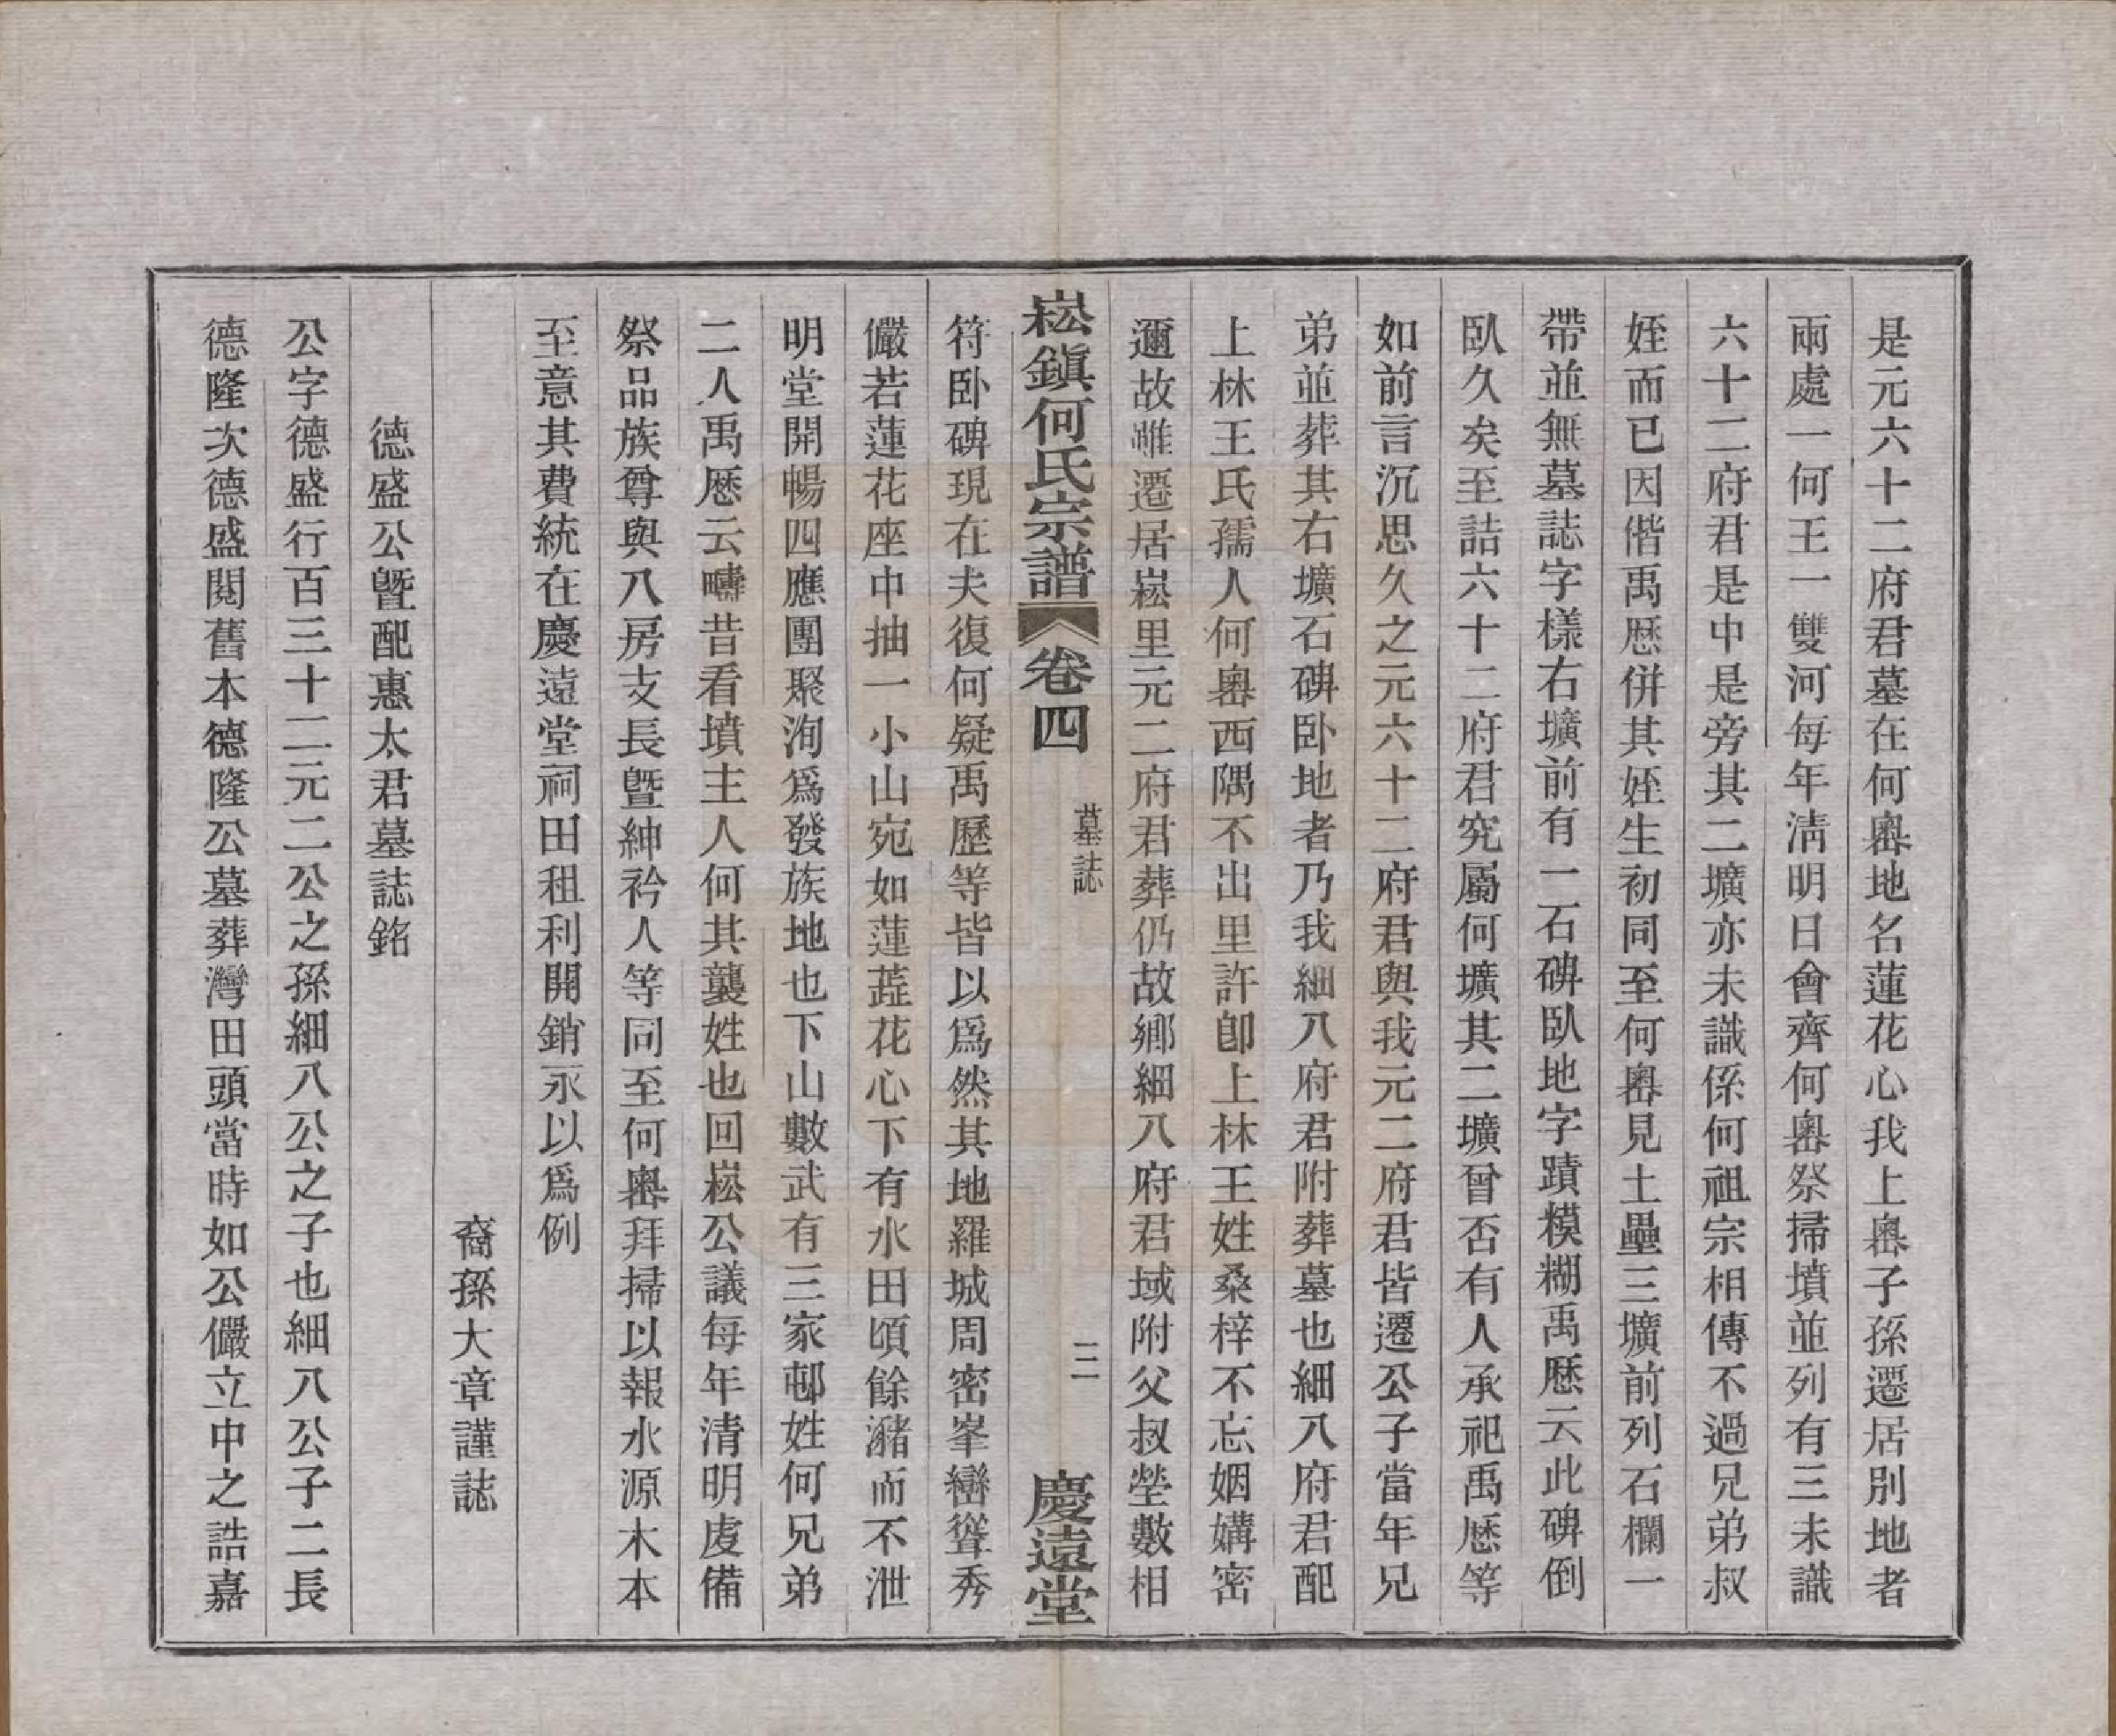 是元六十二府君墓在何嶴地名蓮花心我上嶴子孫遷居別地者
兩處一何王一雙河每年淸明日會齊何嶴祭掃墳並列有三未識
六十二府君是中是旁其二壙亦未識係何祖宗相傳不過兄弟叔
姪而已因偕禹厯併其姪生初同至何嶴見土壘三壙前列石欄一
帶並無墓誌字樣右壙前有一石碑臥地字蹟模糊禹厯云此碑倒
臥久矣至詰六十二府君究屬何壙其二壙曾否有人承祀禹厯等
如前言沉思久之元六十二府君與我元二府君皆遷公子當年兄
弟並葬其右壙石碑卧地者乃我細八府君附葬墓也細八府君配
上林王氏孺人何嶴西隅不出里許卽上林王姓桑梓不忘姻媾密
邇故雖遷居崧里元二府君葬仍故鄉細八府君域附父叔塋數相
崧鎭何氏宗譜 卷四 墓誌 三 慶遠堂
符卧碑現在夫復何疑禹歷等皆以爲然其地羅城周密峯巒聳秀
儼若蓮花座中抽一小山宛如蓮蕋花心下有水田頃餘瀦而不泄
明堂開暢四應團聚洵爲發族地也下山數武有三家邨姓何兄弟
二人禹厯云疇昔看墳主人何其襲姓也回崧公議每年清明虔備
祭品族尊與八房支長曁紳衿人等同至何嶴拜掃以報水源木本
至意其費統在慶遠堂祠田租利開銷永以爲例
裔孫大章謹誌
德盛公曁配惠太君墓誌銘
公字德盛行百三十二元二公之孫細八公之子也細八公子二長
德隆次德盛閱舊本德隆公墓葬灣田頭當時如公儼立中之誥嘉